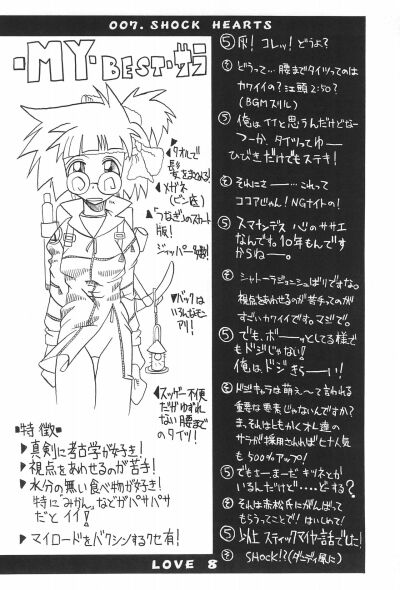 007. SHOCK HEARTS
・MY・BEST・サラ
▶タオルで
髪をまとめる!
▶メガネ
(ビン底)
▲「つなぎ」のスカート
版!
▼バックは
いろんなモン
アリ!
◀スッゲー不便
だがゆずれ
ない腰まで
のタイツ!
■特徴■
▶真剣に考古学が好き!
▶視点をあわせるのが苦手!
▶水分の無い食べ物が好き!
特に「みかん」などがパサパサ
だとイイ!
▶マイロードをバクシンするクセ有!
⑤灰! コレッ! どうよ?
どうって…腰までタイツってのは
カワイイの? 江頭2:50?
(BGMスリル)
⑤俺はイイと思うんだけどなー
つーか、タイツってゆー
ひびきだけでもステキ!
それにさー…これって
ココアじゃん! NGナイトの!
⑤スマンデス
なんです。10年もんです
からねー。
視点をあわせるのが苦手ってのが
すごいカワイイです。マジで。
⑤でも、ボーッとしてる様で
もドジじゃない!
俺は、ドジきらーい!
ドジキャラは萌え〜て言われる
重要な要素じゃないんですか?
ま、それはともかくオレ達の
サラが採用されれば七十人気
も500%アップ!
⑤でもさー、まーだキツネとか
いるんだけど…どーする?
それは赤松氏にがんばって
もらうってことで! はいしめて!
⑤以上 スティックマイヤー話でした!
SHOCK!?(ダーディ風に)
LOVE 8